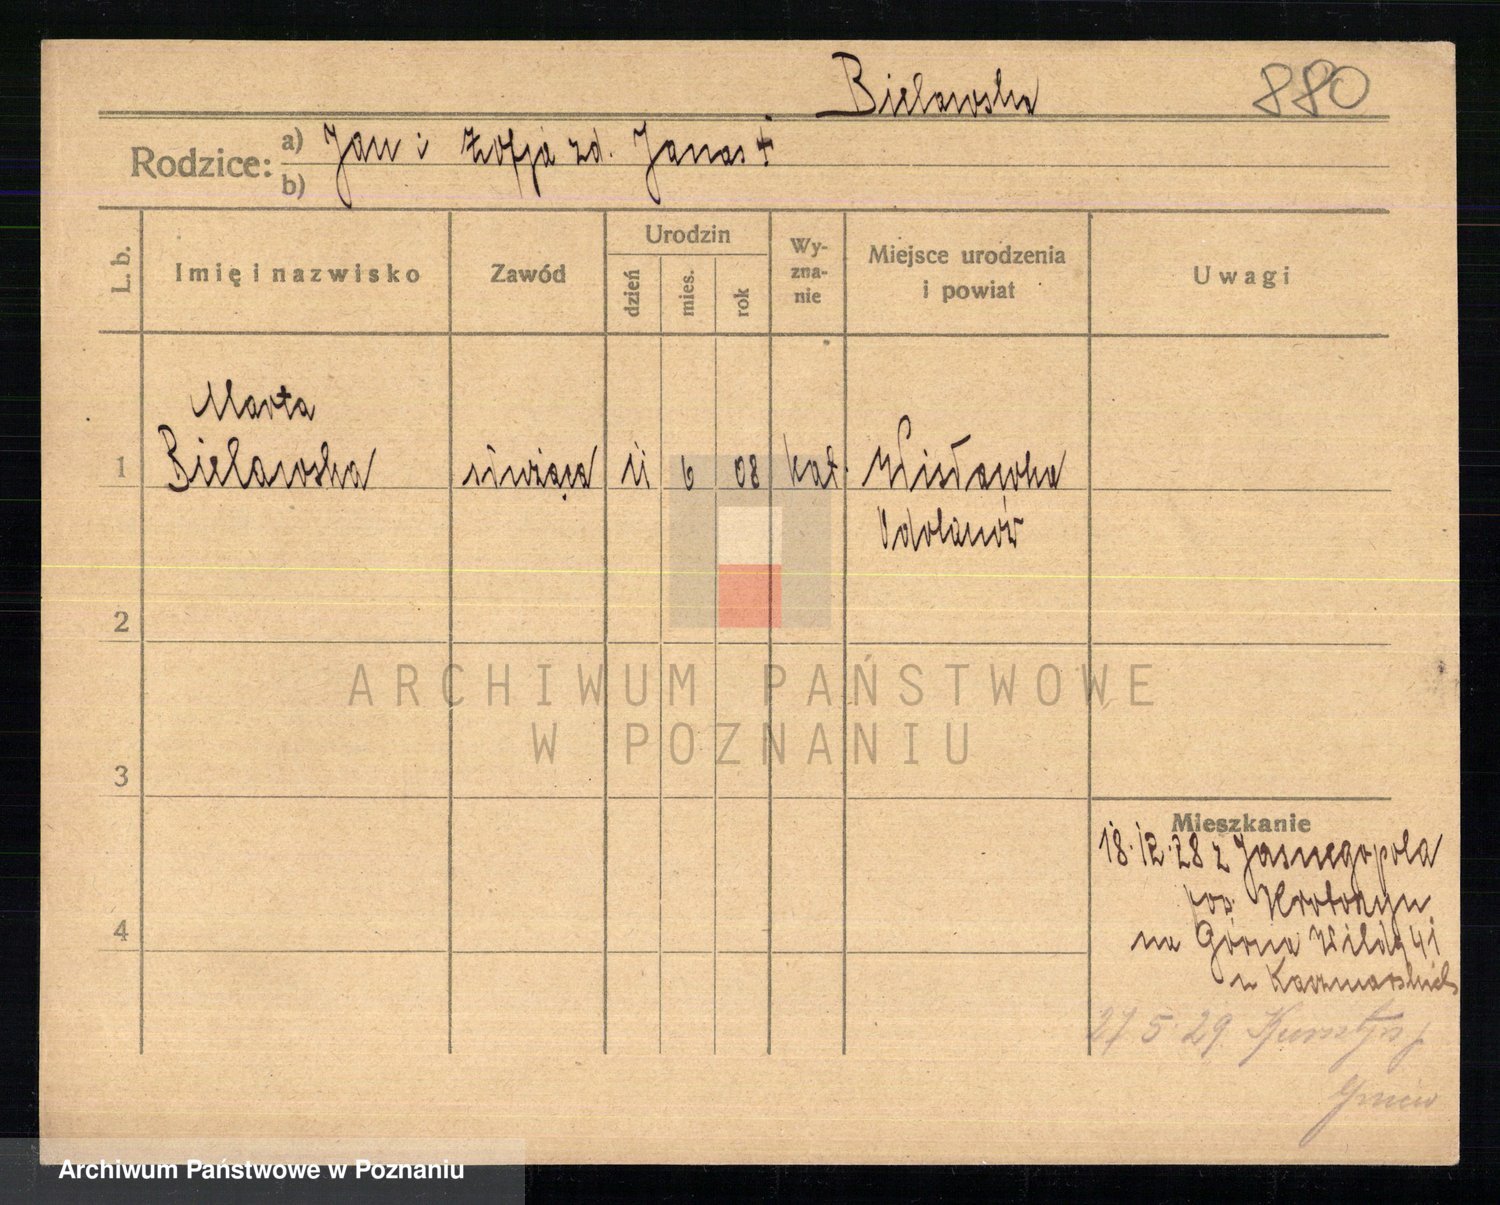 Bielawska
880
Rodzice:
a) Jan i Zofja zd. Janas †
b)
L. b.
Imię i nazwisko
Zawód
Urodzin
dzień
mies.
rok
Wy-
zna-
nie
Miejsce urodzenia
i powiat
Uwagi
Marta
1 Bielawska służąca 11 6 08 kat.
Odolanów
2
3
4
Mieszkanie
18.12.28 z Jasnegopola
Krotoszyn
na Górna Wilda 41
u Kaczmarskich
27 5 29
Gniew
ARCHIWUM PAŃSTWOWE
W POZNANIU
Archiwum Państwowe w Poznaniu